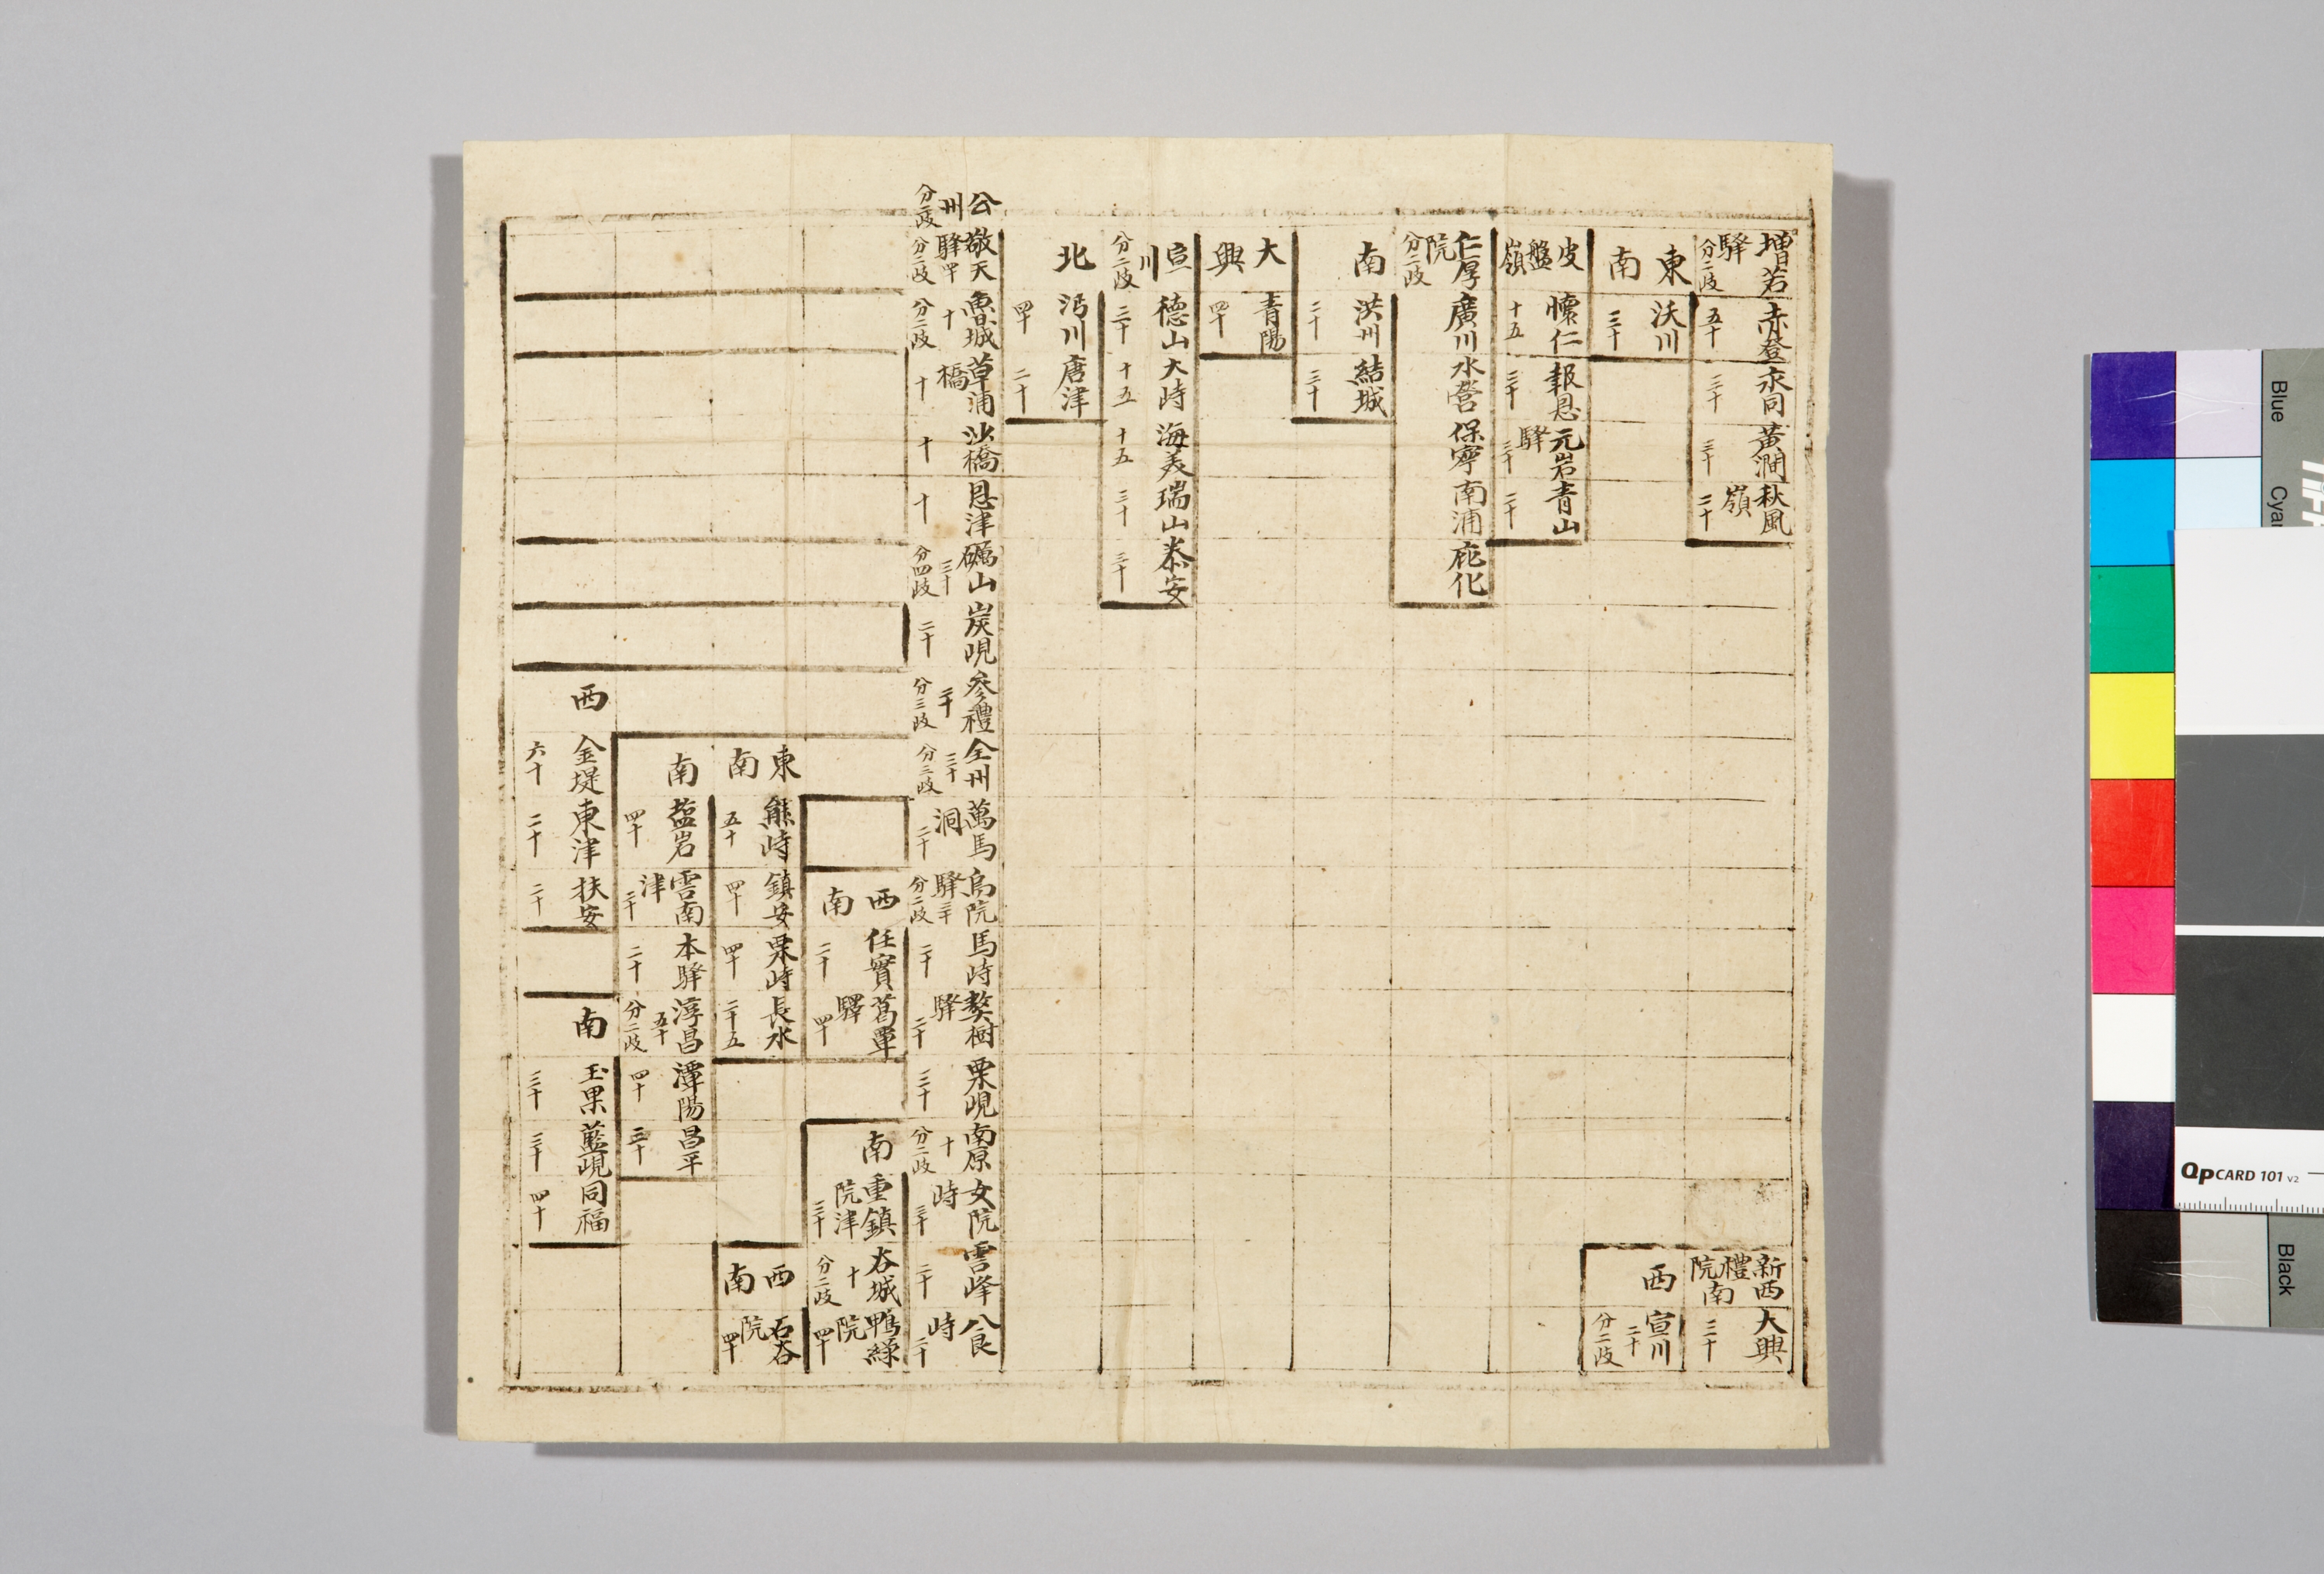 增若驛分二歧 赤登五十 永同三十 黃澗三十 秋風嶺二十
新禮院 西南 大興三十
東南 沃川三十
西 宣川二十分二歧
皮盤嶺 懷仁十五 報恩三十 元岩驛三十 青山二十
仁厚院分二歧 廣川 水營 保寧 南浦 庇化
南 洪州二十 結城三十
大興 青陽四十
宣川分二歧 德山三十 大峙十五 海美十五 瑞山三十 泰安三十
北 沔川四十 唐津二十
公州分二歧 敬天驛四十分二歧 魯城十分二歧 草浦橋十 沙橋十 恩津十 礪山三十分四歧 炭峴二十 參禮三十分三歧 全州三十分三歧 萬馬洞二十 烏院驛三十分二歧 馬峙二十 獒樹驛二十 栗峴三十 南原十分二歧 女院峙三十 雲峰二十 八良峙二十
西南 任實二十 葛覃驛四十
南 重鎮院津三十 吞城十分二歧 鴨綠院四十
東南 熊峙五十 鎮安四十 栗峙四十 長水二十五
西南 石谷院四十
南 塩岩四十 雲南津三十 本驛二十 淳昌五十分二歧 潭陽四十 昌平三十
西 金堤六十 東津二十 扶安二十
南 玉果三十 藍峴三十 同福四十
Blue
Cyan
Black
QPCARD 101 v2